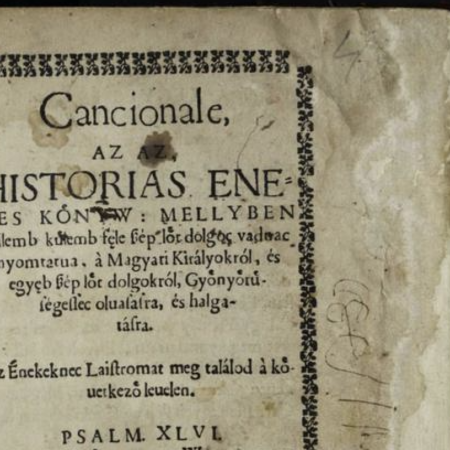 Cancionale,
AZ AZ,
HISTORIAS ENE-
ES KŐNYW: MELLYBEN
kúlemb féle ßép lőt dolgoc vadnac
nyomtatua. à Magyari Királyokról, és
egyęb ßép lőt dolgokról, Győnyőrú-
ségessec oluasásra, és halga-
tásra.
Énekeknec Laistromat meg találod à kő-
uetkező leuelen.
PSALM. XLVI.